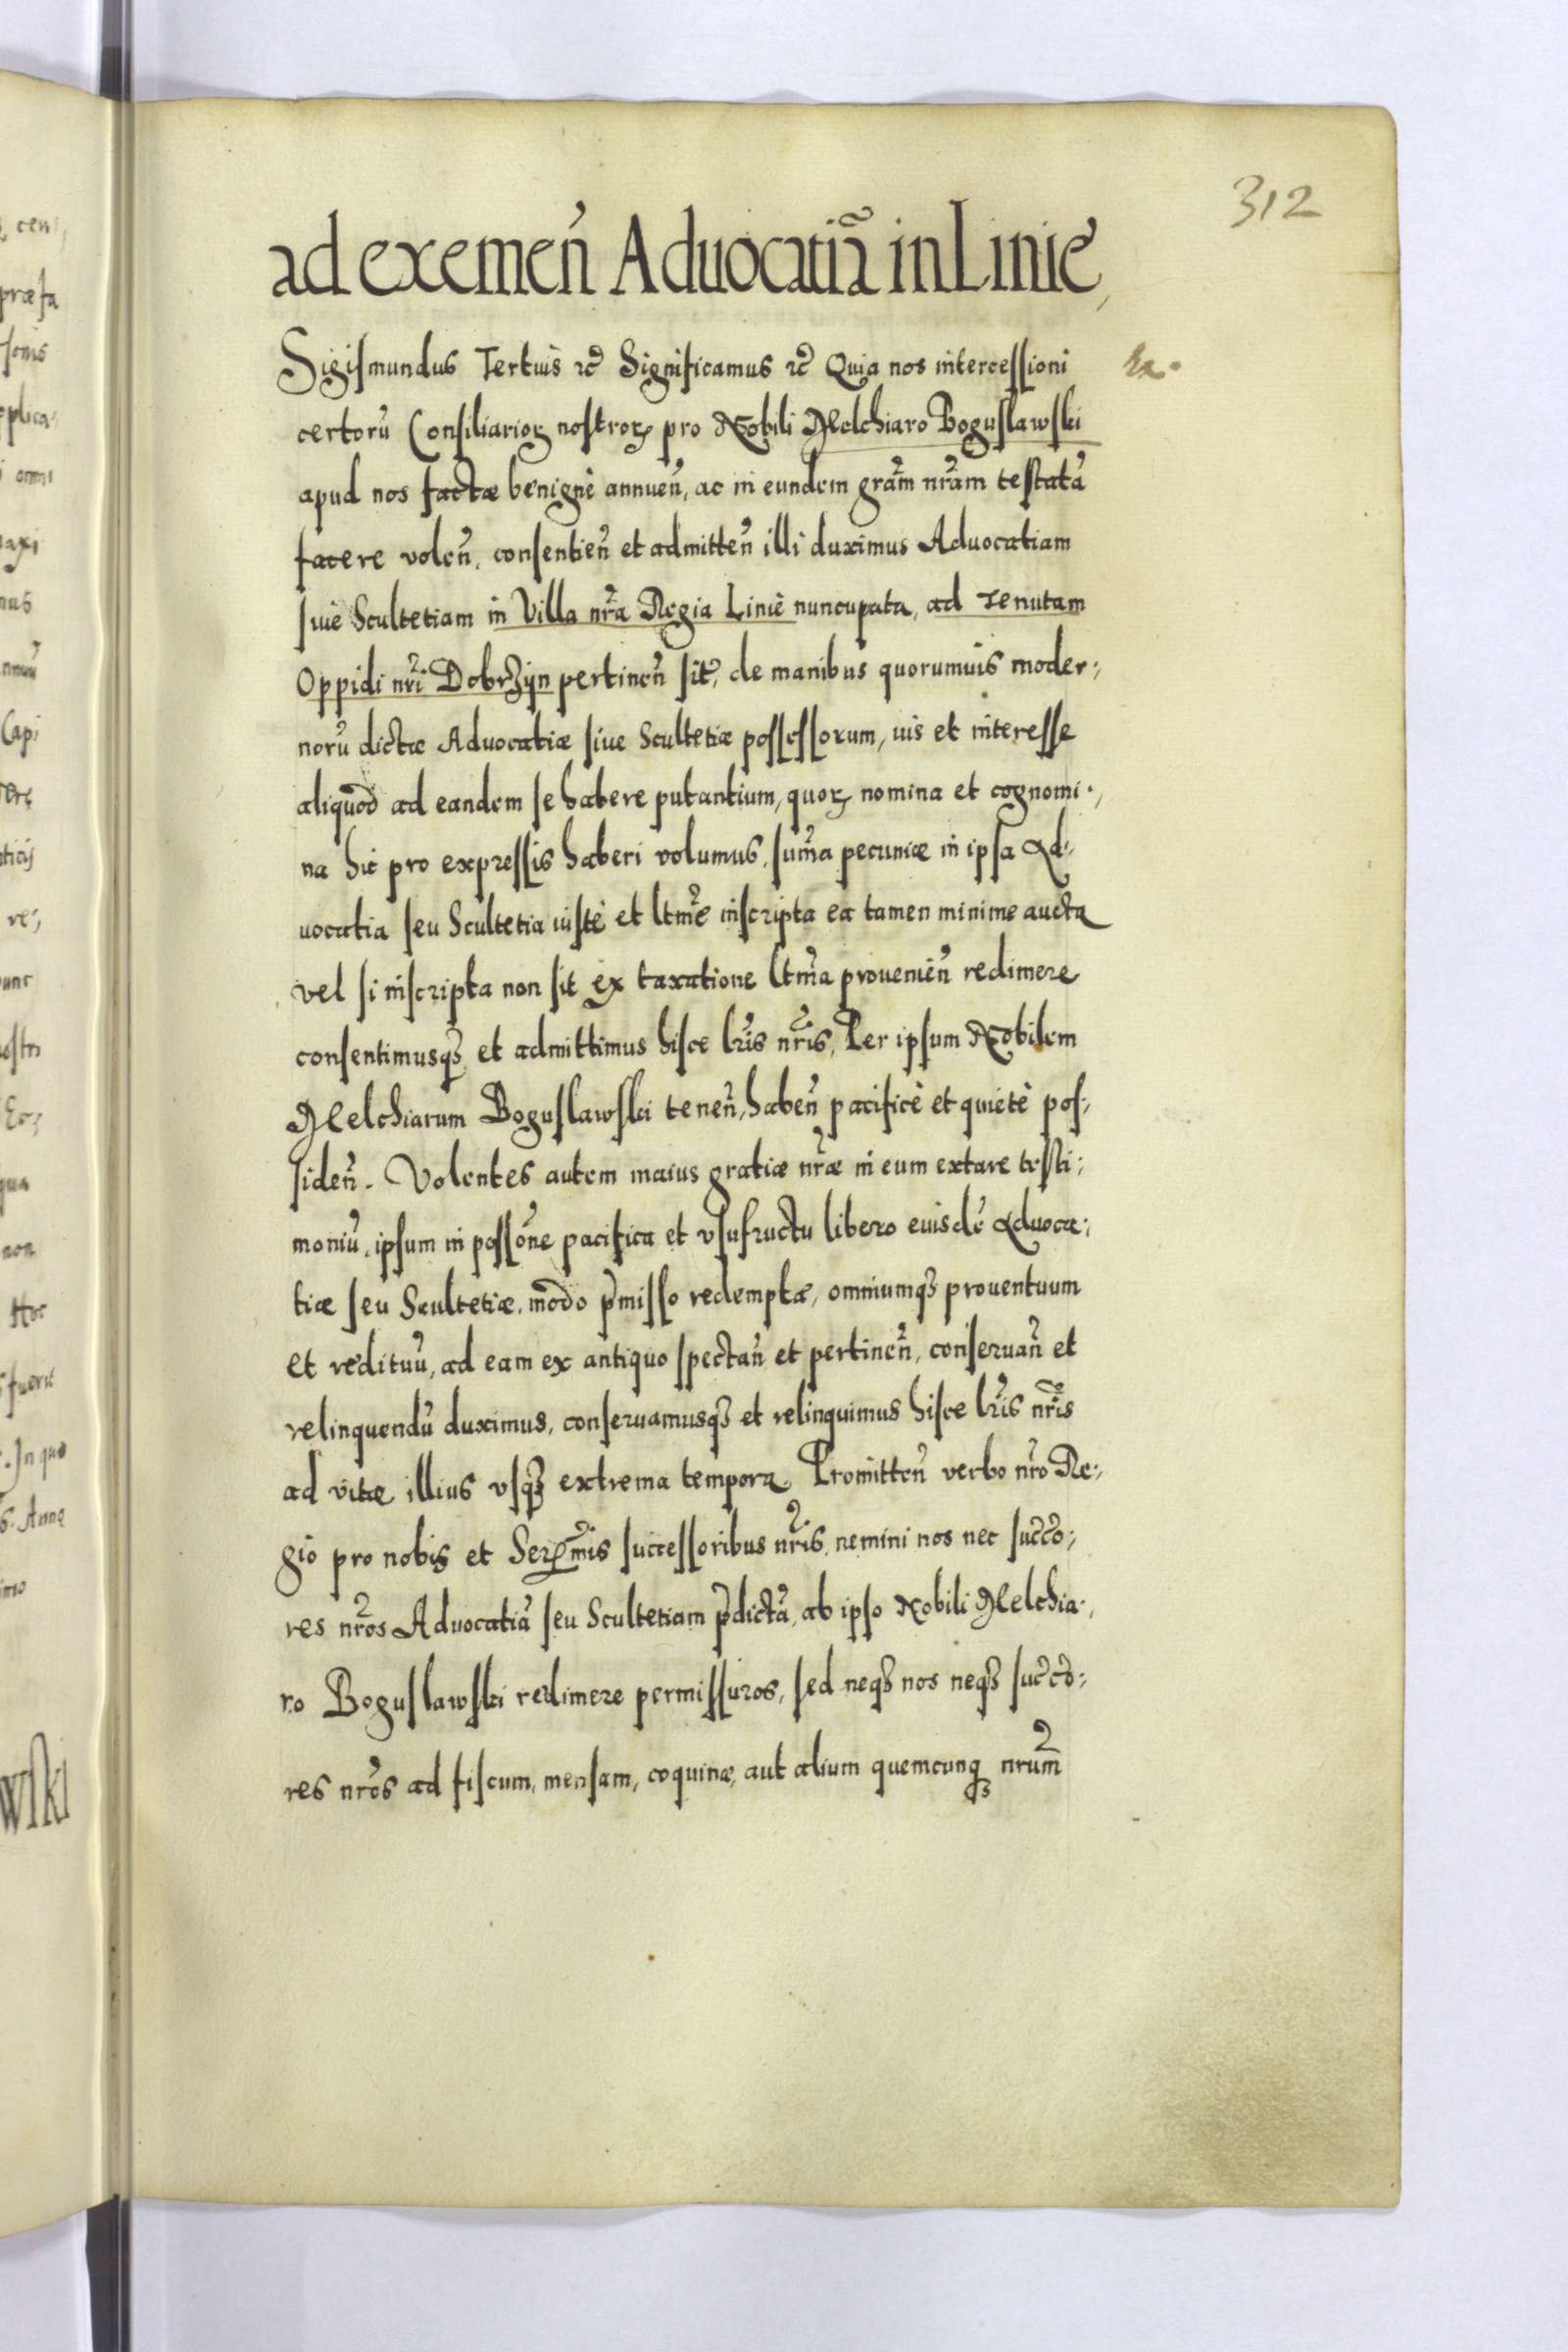 312
ad exemeñ Aduocatiã in Linie,
Sigismundus Tertius etc̃ Significamus etc̃ Quia nos intercessioni
certorũ Consiliarioꝝ nostroꝝ pro Nobili Melchiaro Boguslawski
apud nos factæ benignè annueñ, ac in eundem grãm nrãm testatã
facere voleñ, consentieñ et admitteñ illi duximus Aduocatiam
siue Scultetiam in Villa nrã Regia Linie nuncupata, ad Tenutam
Oppidi nrĩ Dobrzyn pertineñ sitã, de manibus quorumuis moder:
norũ dictæ Aduocatiæ siue Scultetiæ possessorum, ius et interesse
aliquod ad eandem se habere putantium, quoꝝ nomina et cognomi:
na hic pro expressis haberi volumus, sum̃a pecuniæ in ipsa Ad:
uocatia seu Scultetia iustè et ltm̃e inscripta ea tamen minime aucta
vel si inscripta non sit ex taxatione ltm̃a prouenieñ redimere
consentimusqꝫ et admittimus hisce lrĩs nrĩs, Per ipsum Nobilem
Melchiarum Boguslawski teneñ, habeñ pacificè et quietè pos:
sideñ. Volentes autem maius gratiæ nræ̃ in eum extare testi:
moniũ, ipsum in possõne pacifica et vsufructu libero eiusdẽ Aduoca:
tiæ seu Scultetiæ, modo p̃misso redemptæ, omniumqꝫ prouentuum
et redituũ, ad eam ex antiquo spectañ et pertineñ, conseruañ et
relinquendũ duximus, conseruamusqꝫ et relinquimus hisce lrĩs nrĩs
ad vitæ illius vsqꝫ extrema tempora. Promitteñ verbo nrõ Re:
gio pro nobis et Serm̃is successoribus nrĩs, nemini nos nec succõ:
res nrõs Aduocatiã seu Scultetiam p̃dictã, ab ipso Nobili Melchia:
ro Boguslawski redimere permissuros, sed neqꝫ nos neqꝫ succõ:
res nrõs ad fiscum, mensam, coquinã, aut alium quemcunqꝫ nrũm